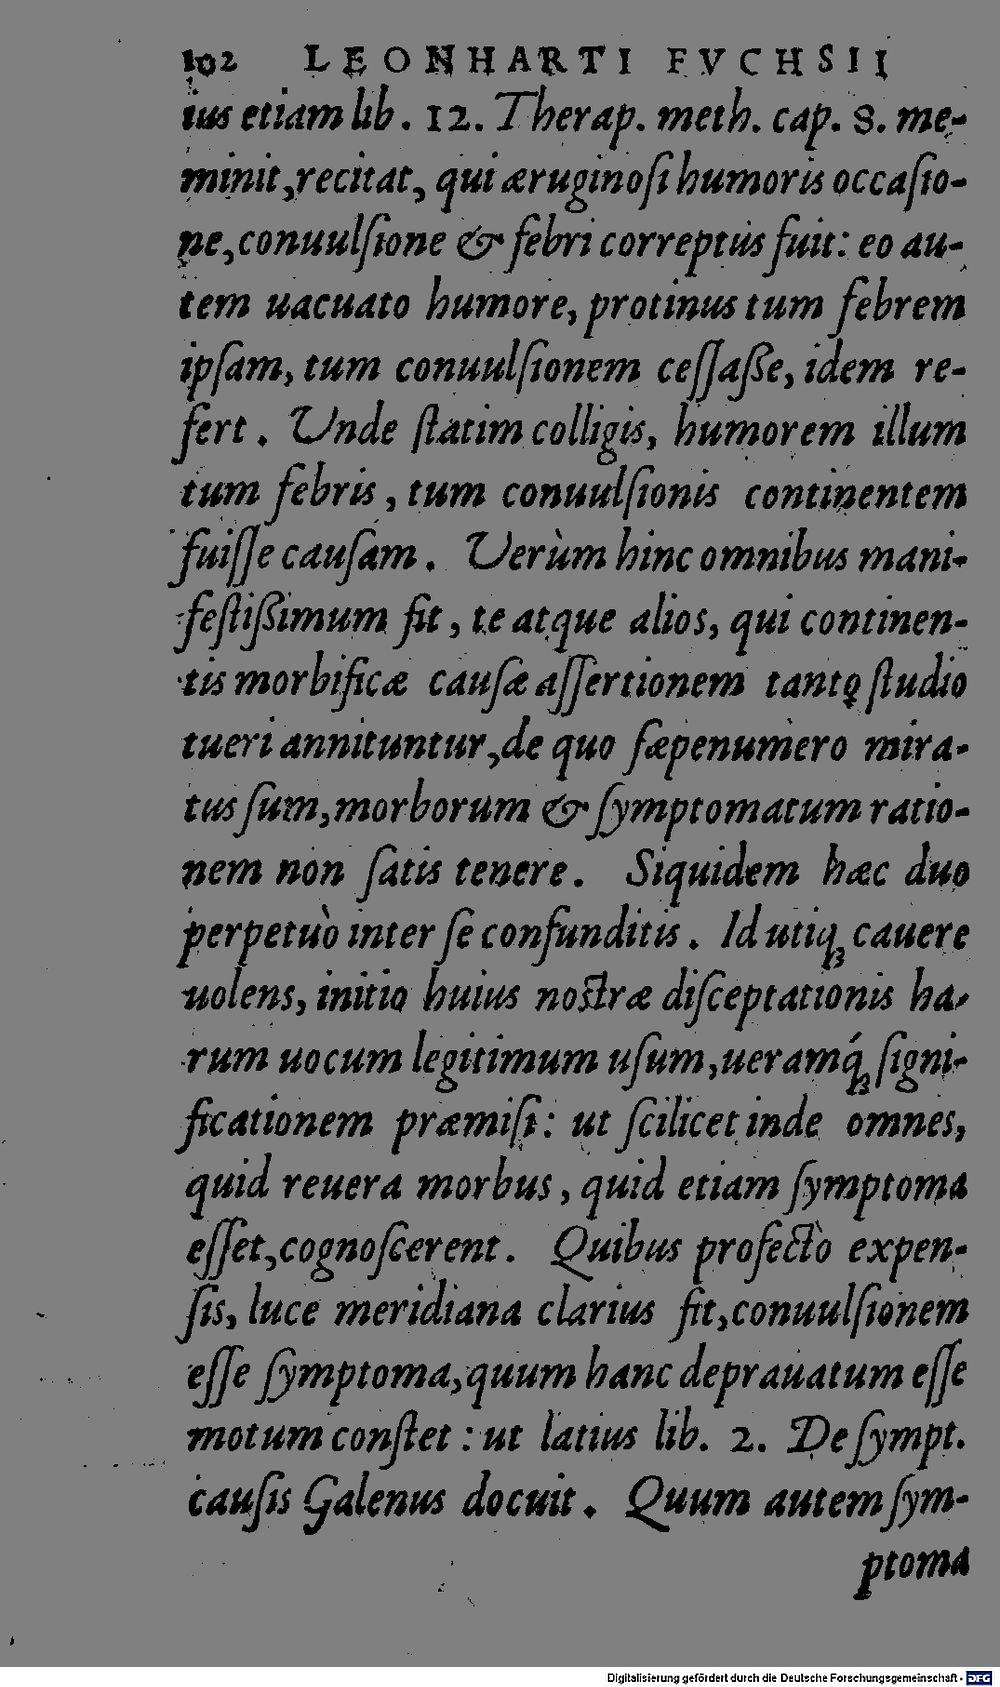 102 LEONHARTI FVCHSII
ius etiam lib. 12. Therap. meth. cap. 8. me-
minit, recitat, qui æruginoſi humoris occaſio-
ne, conuulſione & febri correptus fuit: eo au-
tem uacuato humore, protinus tum febrem
ipſam, tum conuulſionem ceſſaſſe, idem re-
fert. Unde ſtatim colligis, humorem illum
tum febris, tum conuulſionis continentem
fuiſſe cauſam. Verùm hinc omnibus mani-
feſtißimum fit, te atque alios, qui continen-
tis morbificæ cauſæ aſſertionem tanto ſtudio
tueri annituntur, de quo ſæpenumero mira-
tus ſum, morborum & ſymptomatum ratio-
nem non ſatis tenere. Siquidem hæc duo
perpetuò inter ſe confunditis. Id utiq; cauere
uolens, initio huius noſtræ diſceptationis ha-
rum uocum legitimum uſum, ueramq́; ſigni-
ficationem præmiſi: ut ſcilicet inde omnes,
quid reuera morbus, quid etiam ſymptoma
eſſet, cognoſcerent. Quibus profectò expen-
ſis, luce meridiana clarius fit, conuulſionem
eſſe ſymptoma, quum hanc deprauatum eſſe
motum conſtet: ut latius lib. 2. De ſympt.
cauſis Galenus docuit. Quum autem ſym-
ptoma
Digitalisierung gefördert durch die Deutsche Forschungsgemeinschaft - DFG